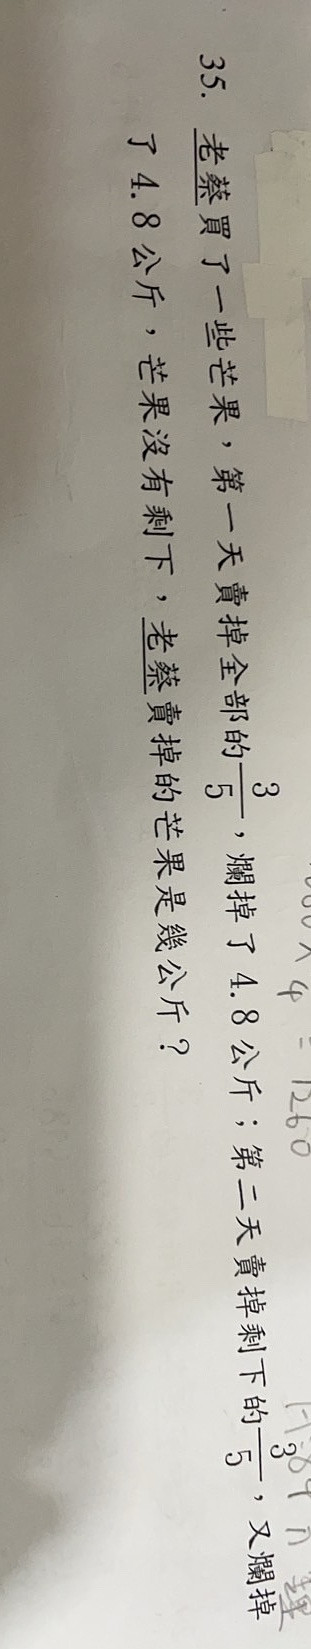 35. 老蔡買了一些芒果，第一天賣掉全部的3/5，爛掉了4.8公斤；第二天賣掉剩下的3/5，又爛掉
了4.8公斤，芒果沒有剩下，老蔡賣掉的芒果是幾公斤？
× 4 = 1260